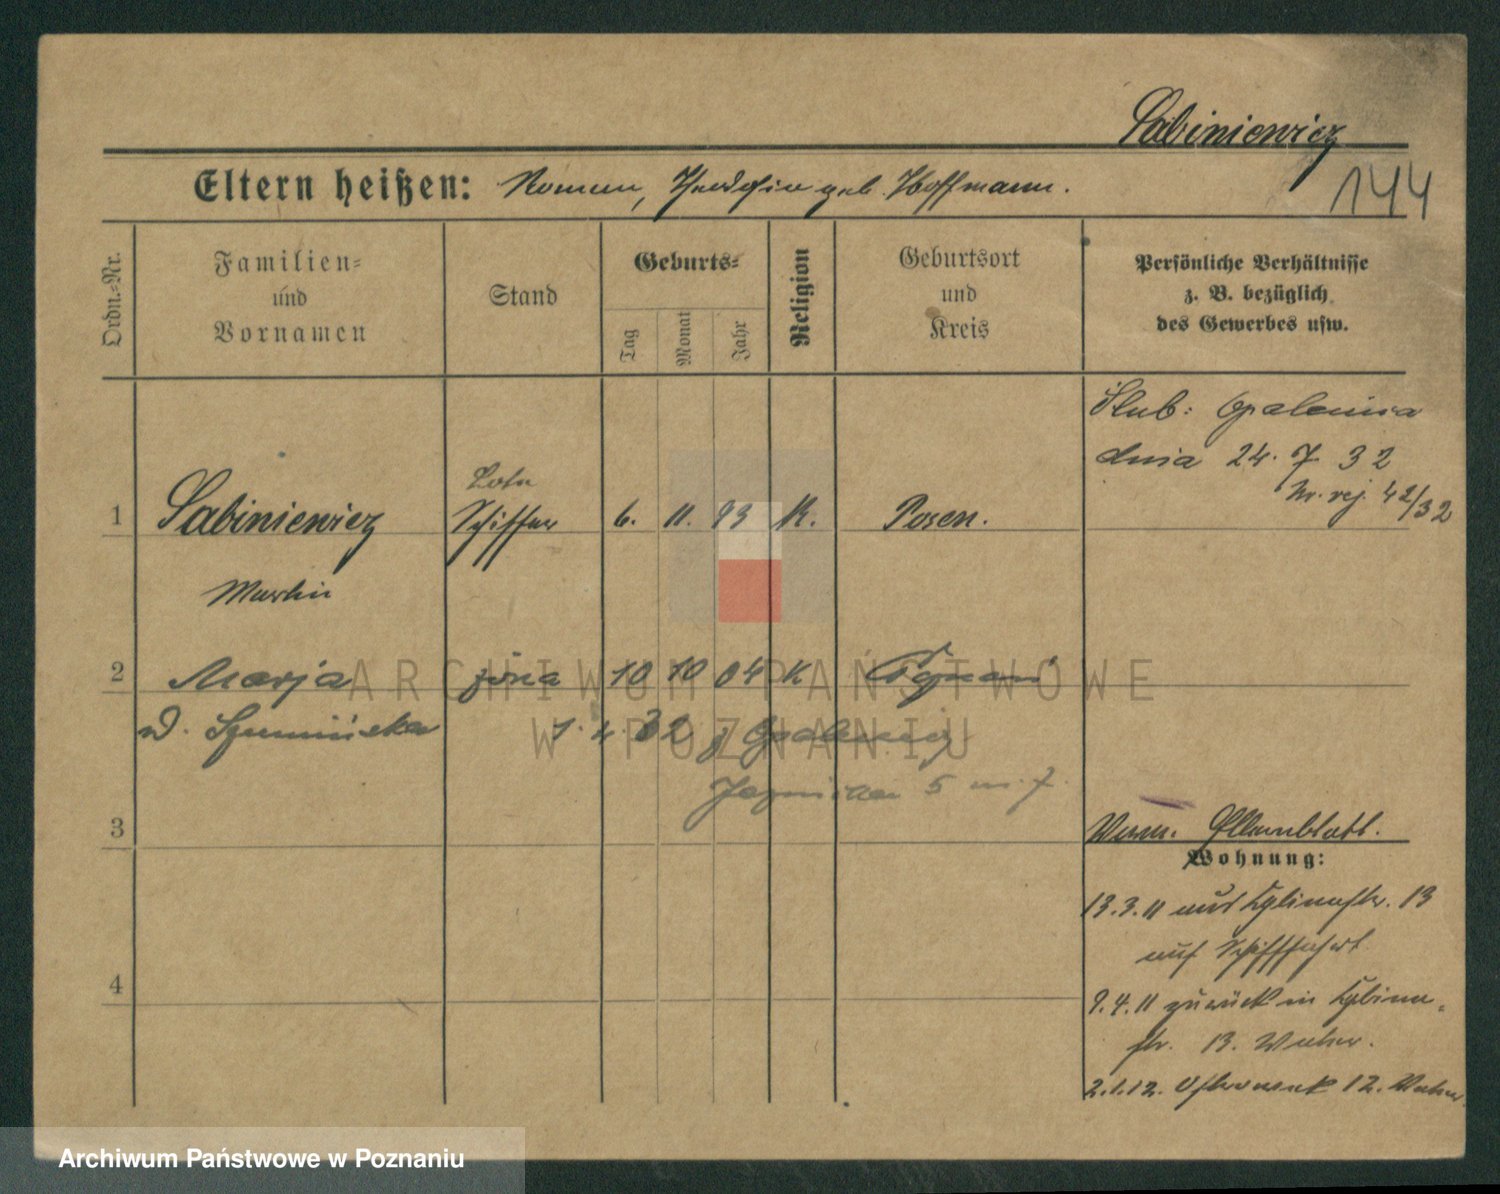 Sabiniewicz
144
Eltern heißen: Roman, geb. Hoffmann.
Ordn.=Nr.
Familien=
und
Vornamen
Stand
Geburts=
Tag
Monat
Jahr
Religion
Geburtsort
und
Kreis
Persönliche Verhältnisse
z. B. bezüglich
des Gewerbes usw.
Ślub: Opalenica
dnia 24. 7 32
Nr. rej. 42/32
1 Sabiniewicz Schiffer 6. 11. 93 K. Posen.
Martin
2 Marja żona 10 10 04 K Poznań
d. Szumińska 32 z Opalenicy
5 m. 7
3
Elternblatt.
Wohnung:
13.3.11 aus 13
auf Schifffahrt
9.4.11 zurück in
str. 13. Vater.
4
2.1.12. Ostrowek 12. Vater.
ARCHIWUM PAŃSTWOWE
W POZNANIU
Archiwum Państwowe w Poznaniu